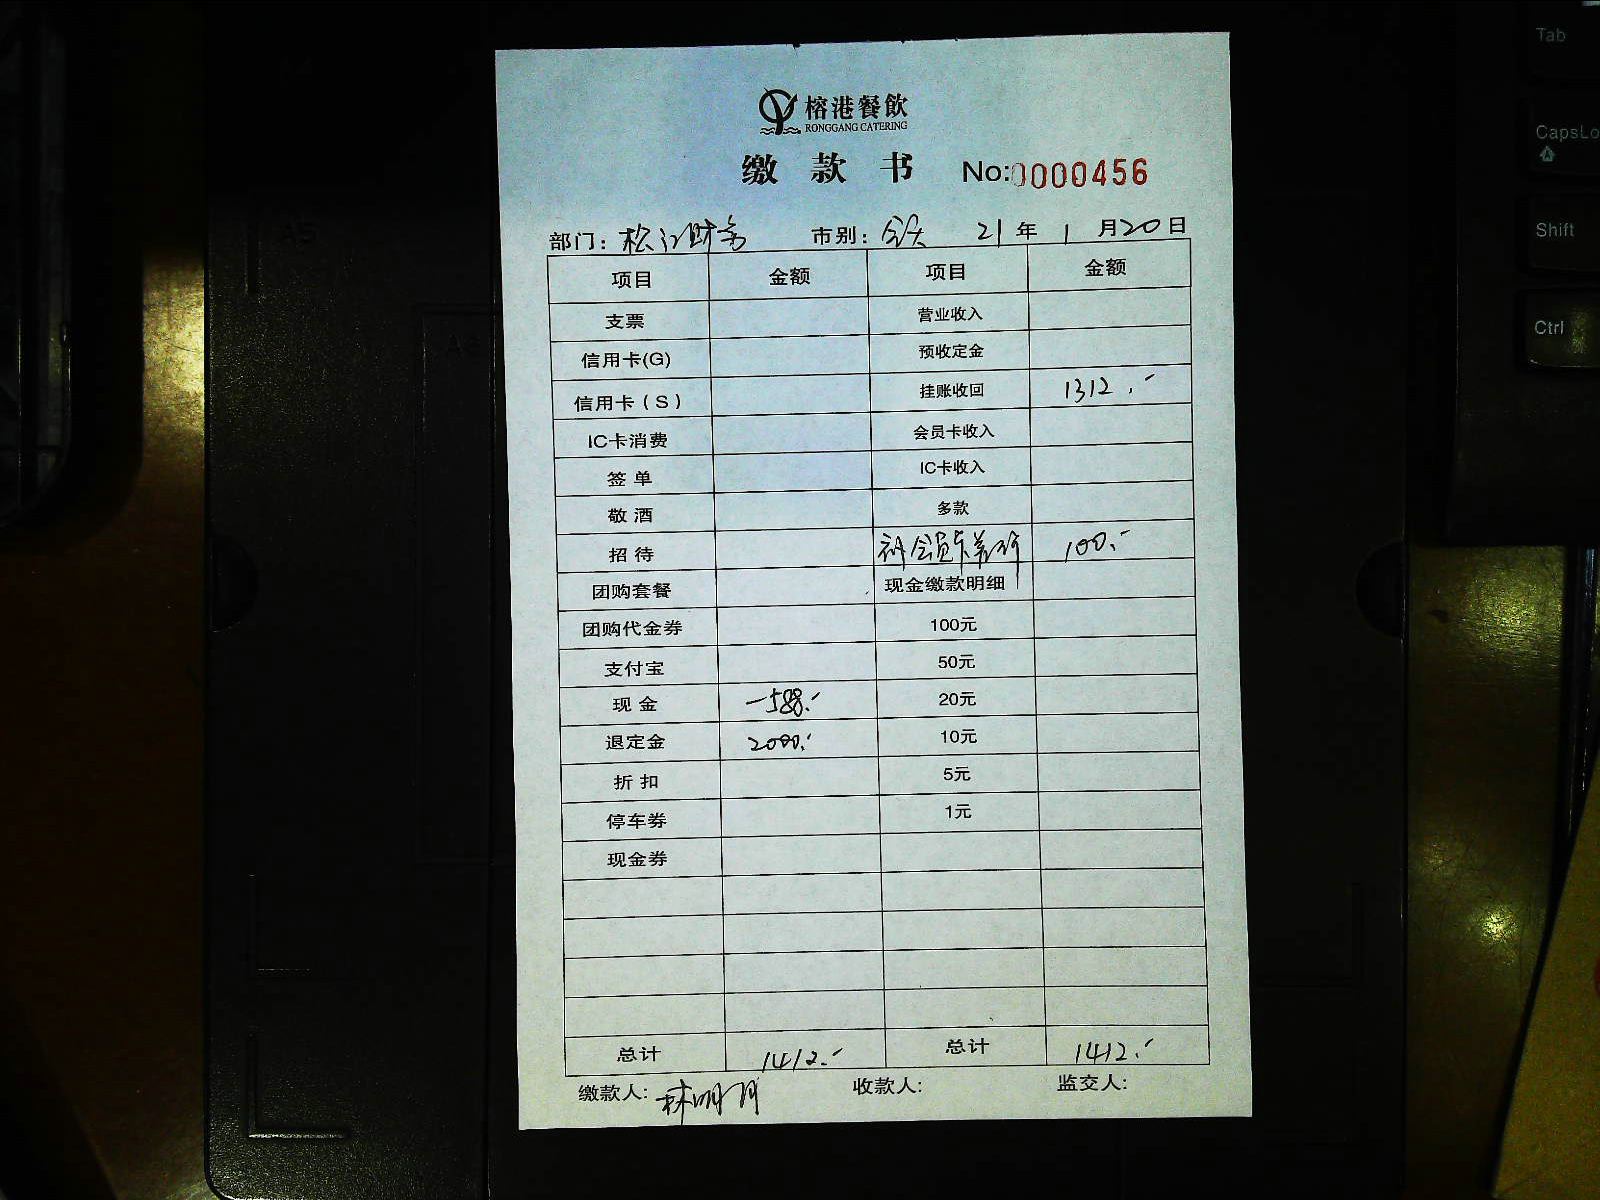 榕港餐飲
RONGGANG CATERING
缴款书 No:0000456
部门: 松江财务 市别: 全天 21年 1月20日
项目 金额 项目 金额
支票 营业收入
信用卡(G) 预收定金
信用卡(S) 挂账收回 1312.-
IC卡消费 会员卡收入
签单 IC卡收入
敬酒 多款
招待 补会员卡差价 100.-
团购套餐 现金缴款明细
团购代金券 100元
支付宝 50元
现金 -588.- 20元
退定金 2000.- 10元
折扣 5元
停车券 1元
现金券
总计 1412.- 总计 1412.-
缴款人: 林明月 收款人: 监交人:
Tab
CapsLo
Shift
Ctrl
A5